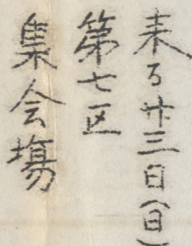 来る廿三日(日)
第七区
集会場